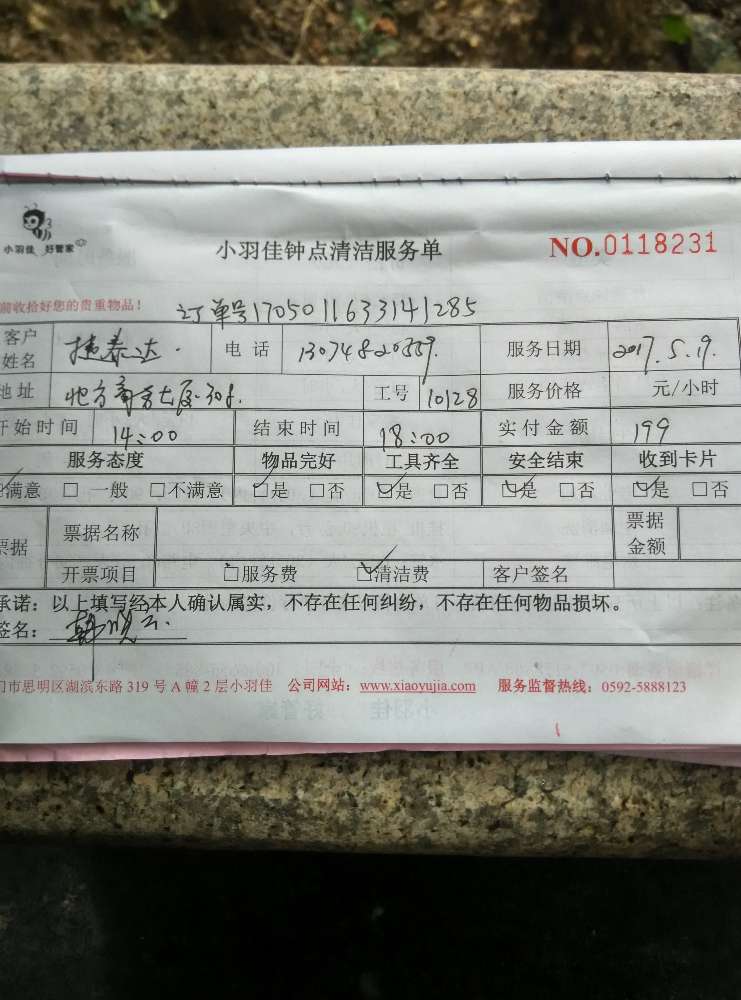 小羽佳 好管家
小羽佳钟点清洁服务单
NO.0118231
前收拾好您的贵重物品！
订单号1705011633141285
客户姓名 捷泰达 电话 13074820559 服务日期 2017.5.19.
地址 地方商务大厦308. 工号 10128 服务价格 元/小时
开始时间 14:00 结束时间 18:00 实付金额 199
服务态度 物品完好 工具齐全 安全结束 收到卡片
☑满意 □一般 □不满意 ☑是 □否 ☑是 □否 ☑是 □否 ☑是 □否
票据 票据名称 票据金额
开票项目 □服务费 ☑清洁费 客户签名
承诺：以上填写经本人确认属实，不存在任何纠纷，不存在任何物品损坏。
签名：韩晓云
门市思明区湖滨东路 319 号 A 幢 2 层小羽佳 公司网站：www.xiaoyujia.com 服务监督热线：0592-5888123